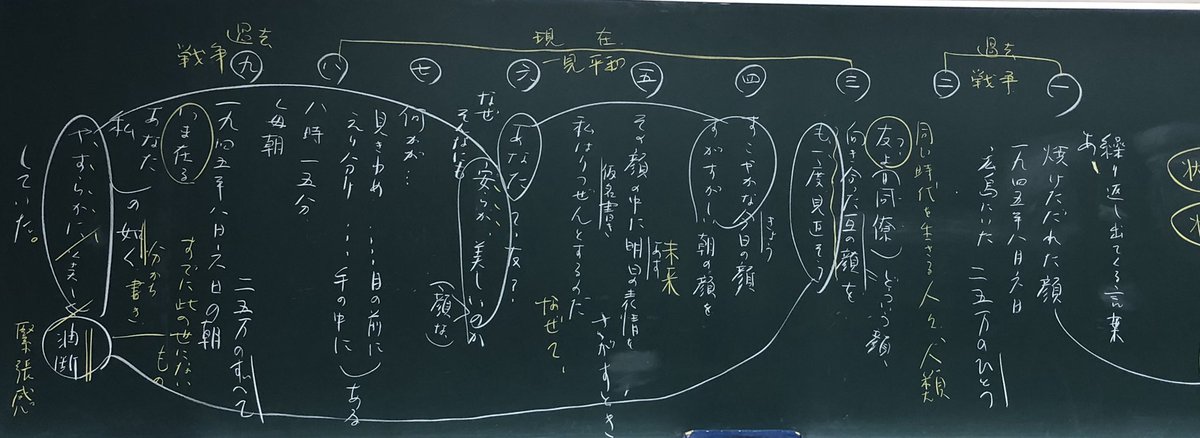 過去
戦争
一
二
現在
一見平和
三
四
五
六
七
八
過去
戦争
九
繰り返し出てくる言葉
あ、
焼けただれた顔
一九四五年八月六日
広島にいた 二五万のひとつ
同じ時代を生きる人々、人類
友よ(同僚)どういう顔
向き合った互の顔を
も一度見直そう
すこやかな今日の顔
きょう
すがすがしい朝の顔を
その顔の中に明日の表情を
あす
未来
さがすとき
私はりつぜんとするのだ
仮名書き
なぜ?
あなた?
友?
なぜそんなにも
安らか、美しいのか
(顔な)
何かが…
見きわめ……目の前に
えり分け……手の中に
ある
八時一五分
毎朝
一九四五年八月六日の朝
二五万のすべて
いま在る
すでに此の世にないもの
あなた
私
の如く
分かち書き
やすらかに
していた。
油断
緊張感